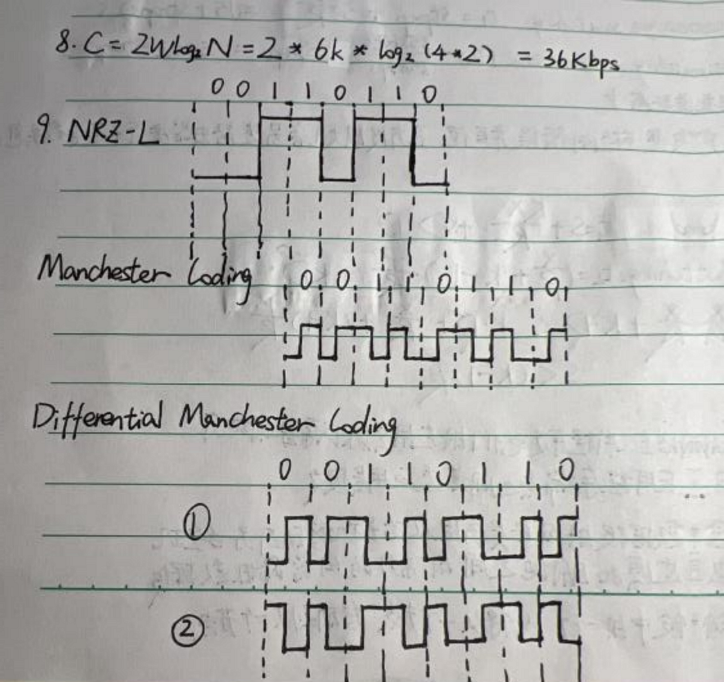 8. C = 2Wlog₂N = 2 * 6k * log₂ (4*2) = 36Kbps
0 0 1 1 0 1 1 0
9. NRZ-L
Manchester Coding 0 0 1 1 0 1 1 0
Differential Manchester Coding
0 0 1 1 0 1 1 0
①
②